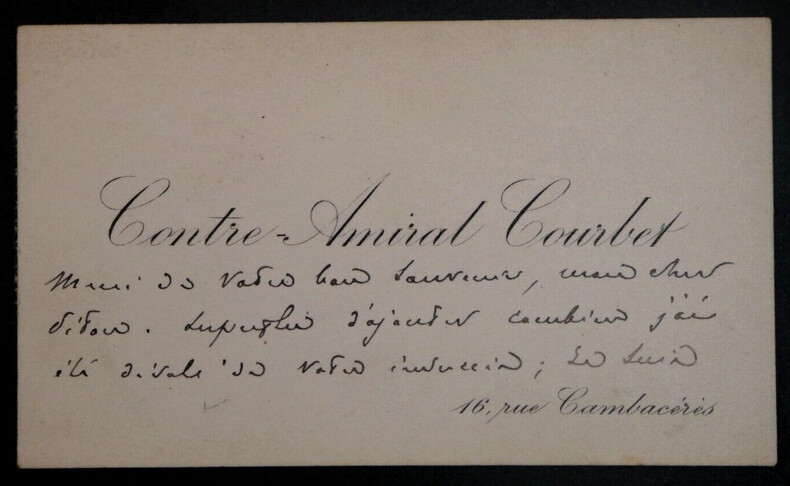 Contre-Amiral Courbet
Merci de votre bon souvenir, mon cher
Superflu d'ajouter combien j'ai
été désolé de votre ; Je suis
16, rue Cambacérès